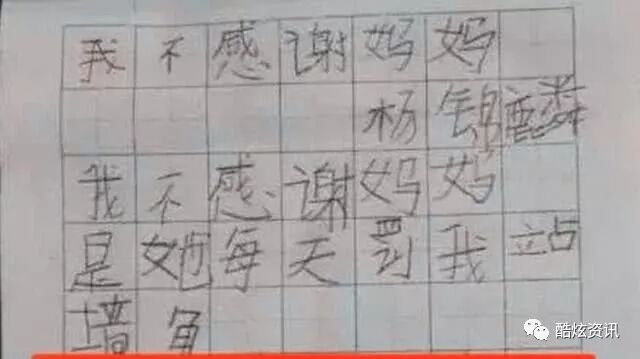 我不感谢妈妈
杨锦麟
我不感谢妈妈
是她每天罚我站
墙角
酷炫资讯